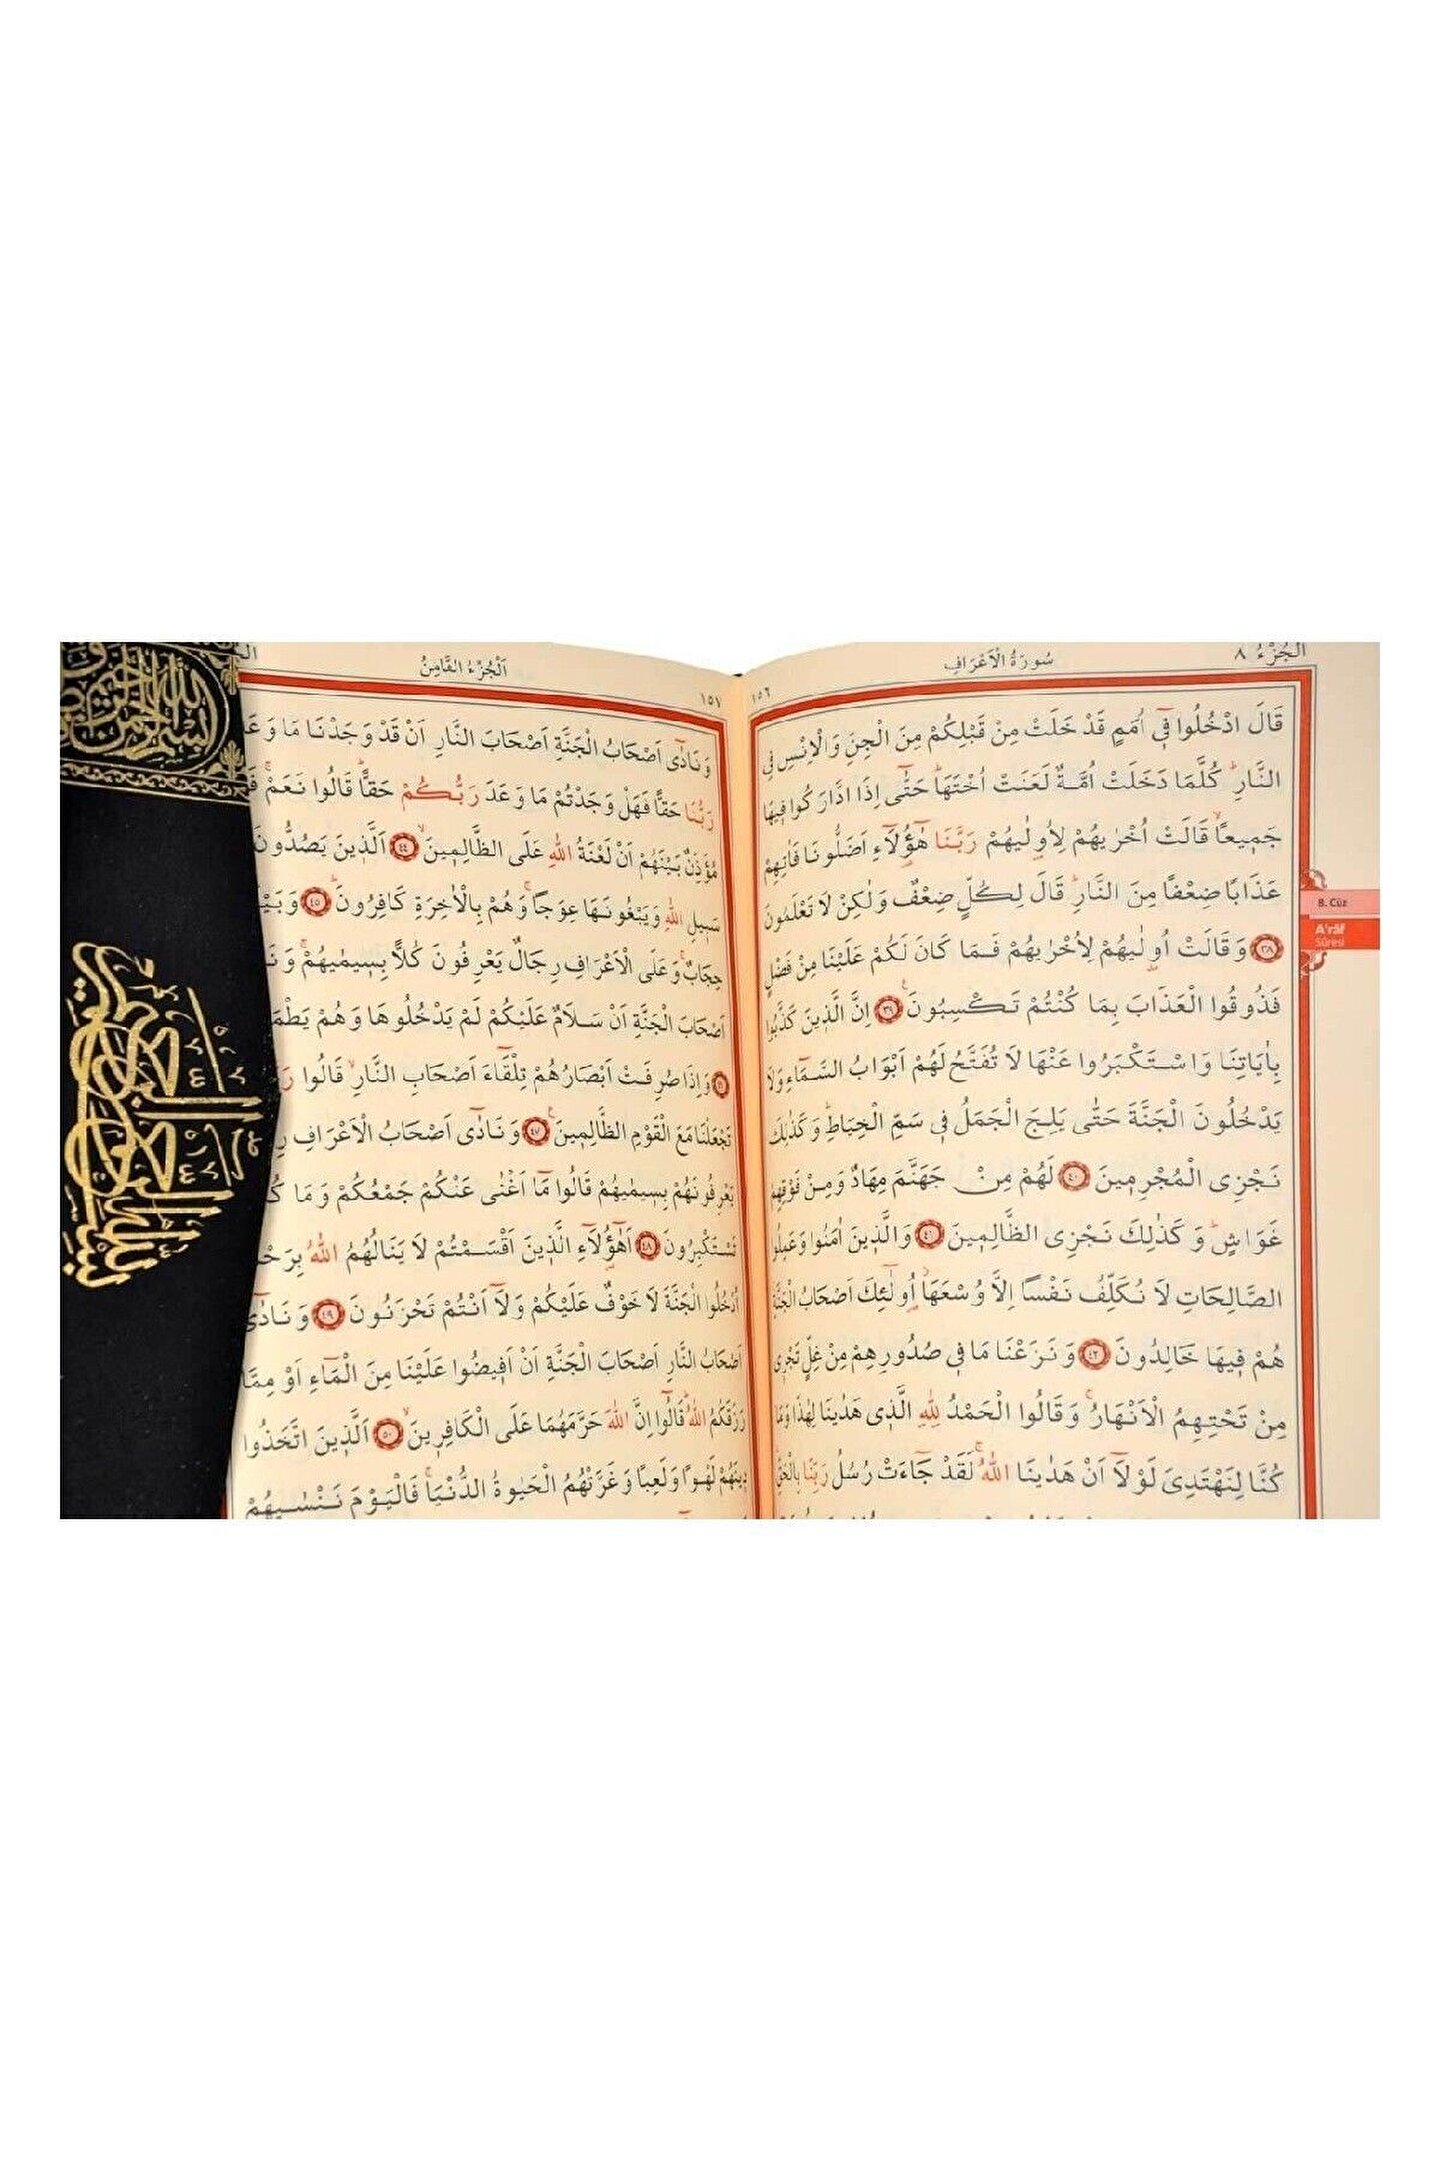 الجزء ٨
سُورَةُ الْاَعْرَافِ
١٥٦
قَالَ ادْخُلُوا فٓي اُمَمٍ قَدْ خَلَتْ مِنْ قَبْلِكُمْ مِنَ الْجِنِّ وَالْاِنْسِ فِي
النَّارِۜ كُلَّمَا دَخَلَتْ اُمَّةٌ لَعَنَتْ اُخْتَهَاۜ حَتّٰٓى اِذَا ادَّارَكُوا فٖيهَا
جَمٖيعاًۙ قَالَتْ اُخْرٰيهُمْ لِاُو۫لٰيهُمْ رَبَّنَا هٰٓؤُ۬لَٓاءِ اَضَلُّونَا فَاٰتِهِمْ
عَذَابًا ضِعْفًا مِنَ النَّارِۜ قَالَ لِكُلٍّ ضِعْفٌ وَلٰكِنْ لَا تَعْلَمُونَ
٣٨ وَقَالَتْ اُو۫لٰيهُمْ لِاُخْرٰيهُمْ فَمَا كَانَ لَكُمْ عَلَيْنَا مِنْ فَضْلٍ
فَذُوقُوا الْعَذَابَ بِمَا كُنْتُمْ تَكْسِبُونَ۟ ٣٩ اِنَّ الَّذٖينَ كَذَّبُوا
بِاٰيَاتِنَا وَاسْتَكْبَرُوا عَنْهَا لَا تُفَتَّحُ لَهُمْ اَبْوَابُ السَّمَٓاءِ وَلَا
يَدْخُلُونَ الْجَنَّةَ حَتّٰى يَلِجَ الْجَمَلُ فٖي سَمِّ الْخِيَاطِۜ وَكَذٰلِكَ
نَجْزِي الْمُجْرِمٖينَ ٤٠ لَهُمْ مِنْ جَهَنَّمَ مِهَادٌ وَمِنْ فَوْقِهِمْ
غَوَاشٍۜ وَكَذٰلِكَ نَجْزِي الظَّالِمٖينَ ٤١ وَالَّذٖينَ اٰمَنُوا وَعَمِلُوا
الصَّالِحَاتِ لَا نُكَلِّفُ نَفْسًا اِلَّا وُسْعَهَاۘ اُو۬لٰٓئِكَ اَصْحَابُ الْجَنَّةِ
هُمْ فٖيهَا خَالِدُونَ ٤٢ وَنَزَعْنَا مَا فٖي صُدُورِهِمْ مِنْ غِلٍّ تَجْرٖي
مِنْ تَحْتِهِمُ الْاَنْهَارُۚ وَقَالُوا الْحَمْدُ لِلّٰهِ الَّذٖي هَدٰينَا لِهٰذَا وَمَا
كُنَّا لِنَهْتَدِيَ لَوْلَٓا اَنْ هَدٰينَا اللّٰهُۚ لَقَدْ جَٓاءَتْ رُسُلُ رَبِّنَا بِالْحَقِّۜ
8. Cüz
A'râf
Sûresi
اَلْجُزْءُ الثَّامِنُ
١٥٧
وَنَادٰٓى اَصْحَابُ الْجَنَّةِ اَصْحَابَ النَّارِ اَنْ قَدْ وَجَدْنَا مَا
رَبُّنَا حَقًّا فَهَلْ وَجَدْتُمْ مَا وَعَدَ رَبُّكُمْ حَقًّاۜ قَالُوا نَعَمْۚ
مُؤَذِّنٌ بَيْنَهُمْ اَنْ لَعْنَةُ اللّٰهِ عَلَى الظَّالِمٖينَۙ ٤٤ اَلَّذٖينَ يَصُدُّونَ
سَبٖيلِ اللّٰهِ وَيَبْغُونَهَا عِوَجًاۚ وَهُمْ بِالْاٰخِرَةِ كَافِرُونَۜ ٤٥
حِجَابٌۚ وَعَلَى الْاَعْرَافِ رِجَالٌ يَعْرِفُونَ كُلًّا بِسٖيمٰيهُمْۚ
اَصْحَابَ الْجَنَّةِ اَنْ سَلَامٌ عَلَيْكُمْ لَمْ يَدْخُلُوهَا وَهُمْ
وَاِذَا صُرِفَتْ اَبْصَارُهُمْ تِلْقَٓاءَ اَصْحَابِ النَّارِۙ قَالُوا
تَجْعَلْنَا مَعَ الْقَوْمِ الظَّالِمٖينَ۟ ٤٧ وَنَادٰٓى اَصْحَابُ الْاَعْرَافِ
يَعْرِفُونَهُمْ بِسٖيمٰيهُمْ قَالُوا مَٓا اَغْنٰى عَنْكُمْ جَمْعُكُمْ وَمَا
تَسْتَكْبِرُونَ ٤٨ اَهٰٓؤُ۬لَٓاءِ الَّذٖينَ اَقْسَمْتُمْ لَا يَنَالُهُمُ اللّٰهُ
اُدْخُلُوا الْجَنَّةَ لَا خَوْفٌ عَلَيْكُمْ وَلَٓا اَنْتُمْ تَحْزَنُونَ ٤٩ وَنَادٰٓى
اَصْحَابُ النَّارِ اَصْحَابَ الْجَنَّةِ اَنْ اَفٖيضُوا عَلَيْنَا مِنَ الْمَٓاءِ اَوْ مِمَّا
رَزَقَكُمُ اللّٰهُۜ قَالُٓوا اِنَّ اللّٰهَ حَرَّمَهُمَا عَلَى الْكَافِرٖينَۙ ٥٠ اَلَّذٖينَ اتَّخَذُوا
دٖينَهُمْ لَهْوًا وَلَعِبًا وَغَرَّتْهُمُ الْحَيٰوةُ الدُّنْيَاۚ فَالْيَوْمَ نَنْسٰيهُمْ